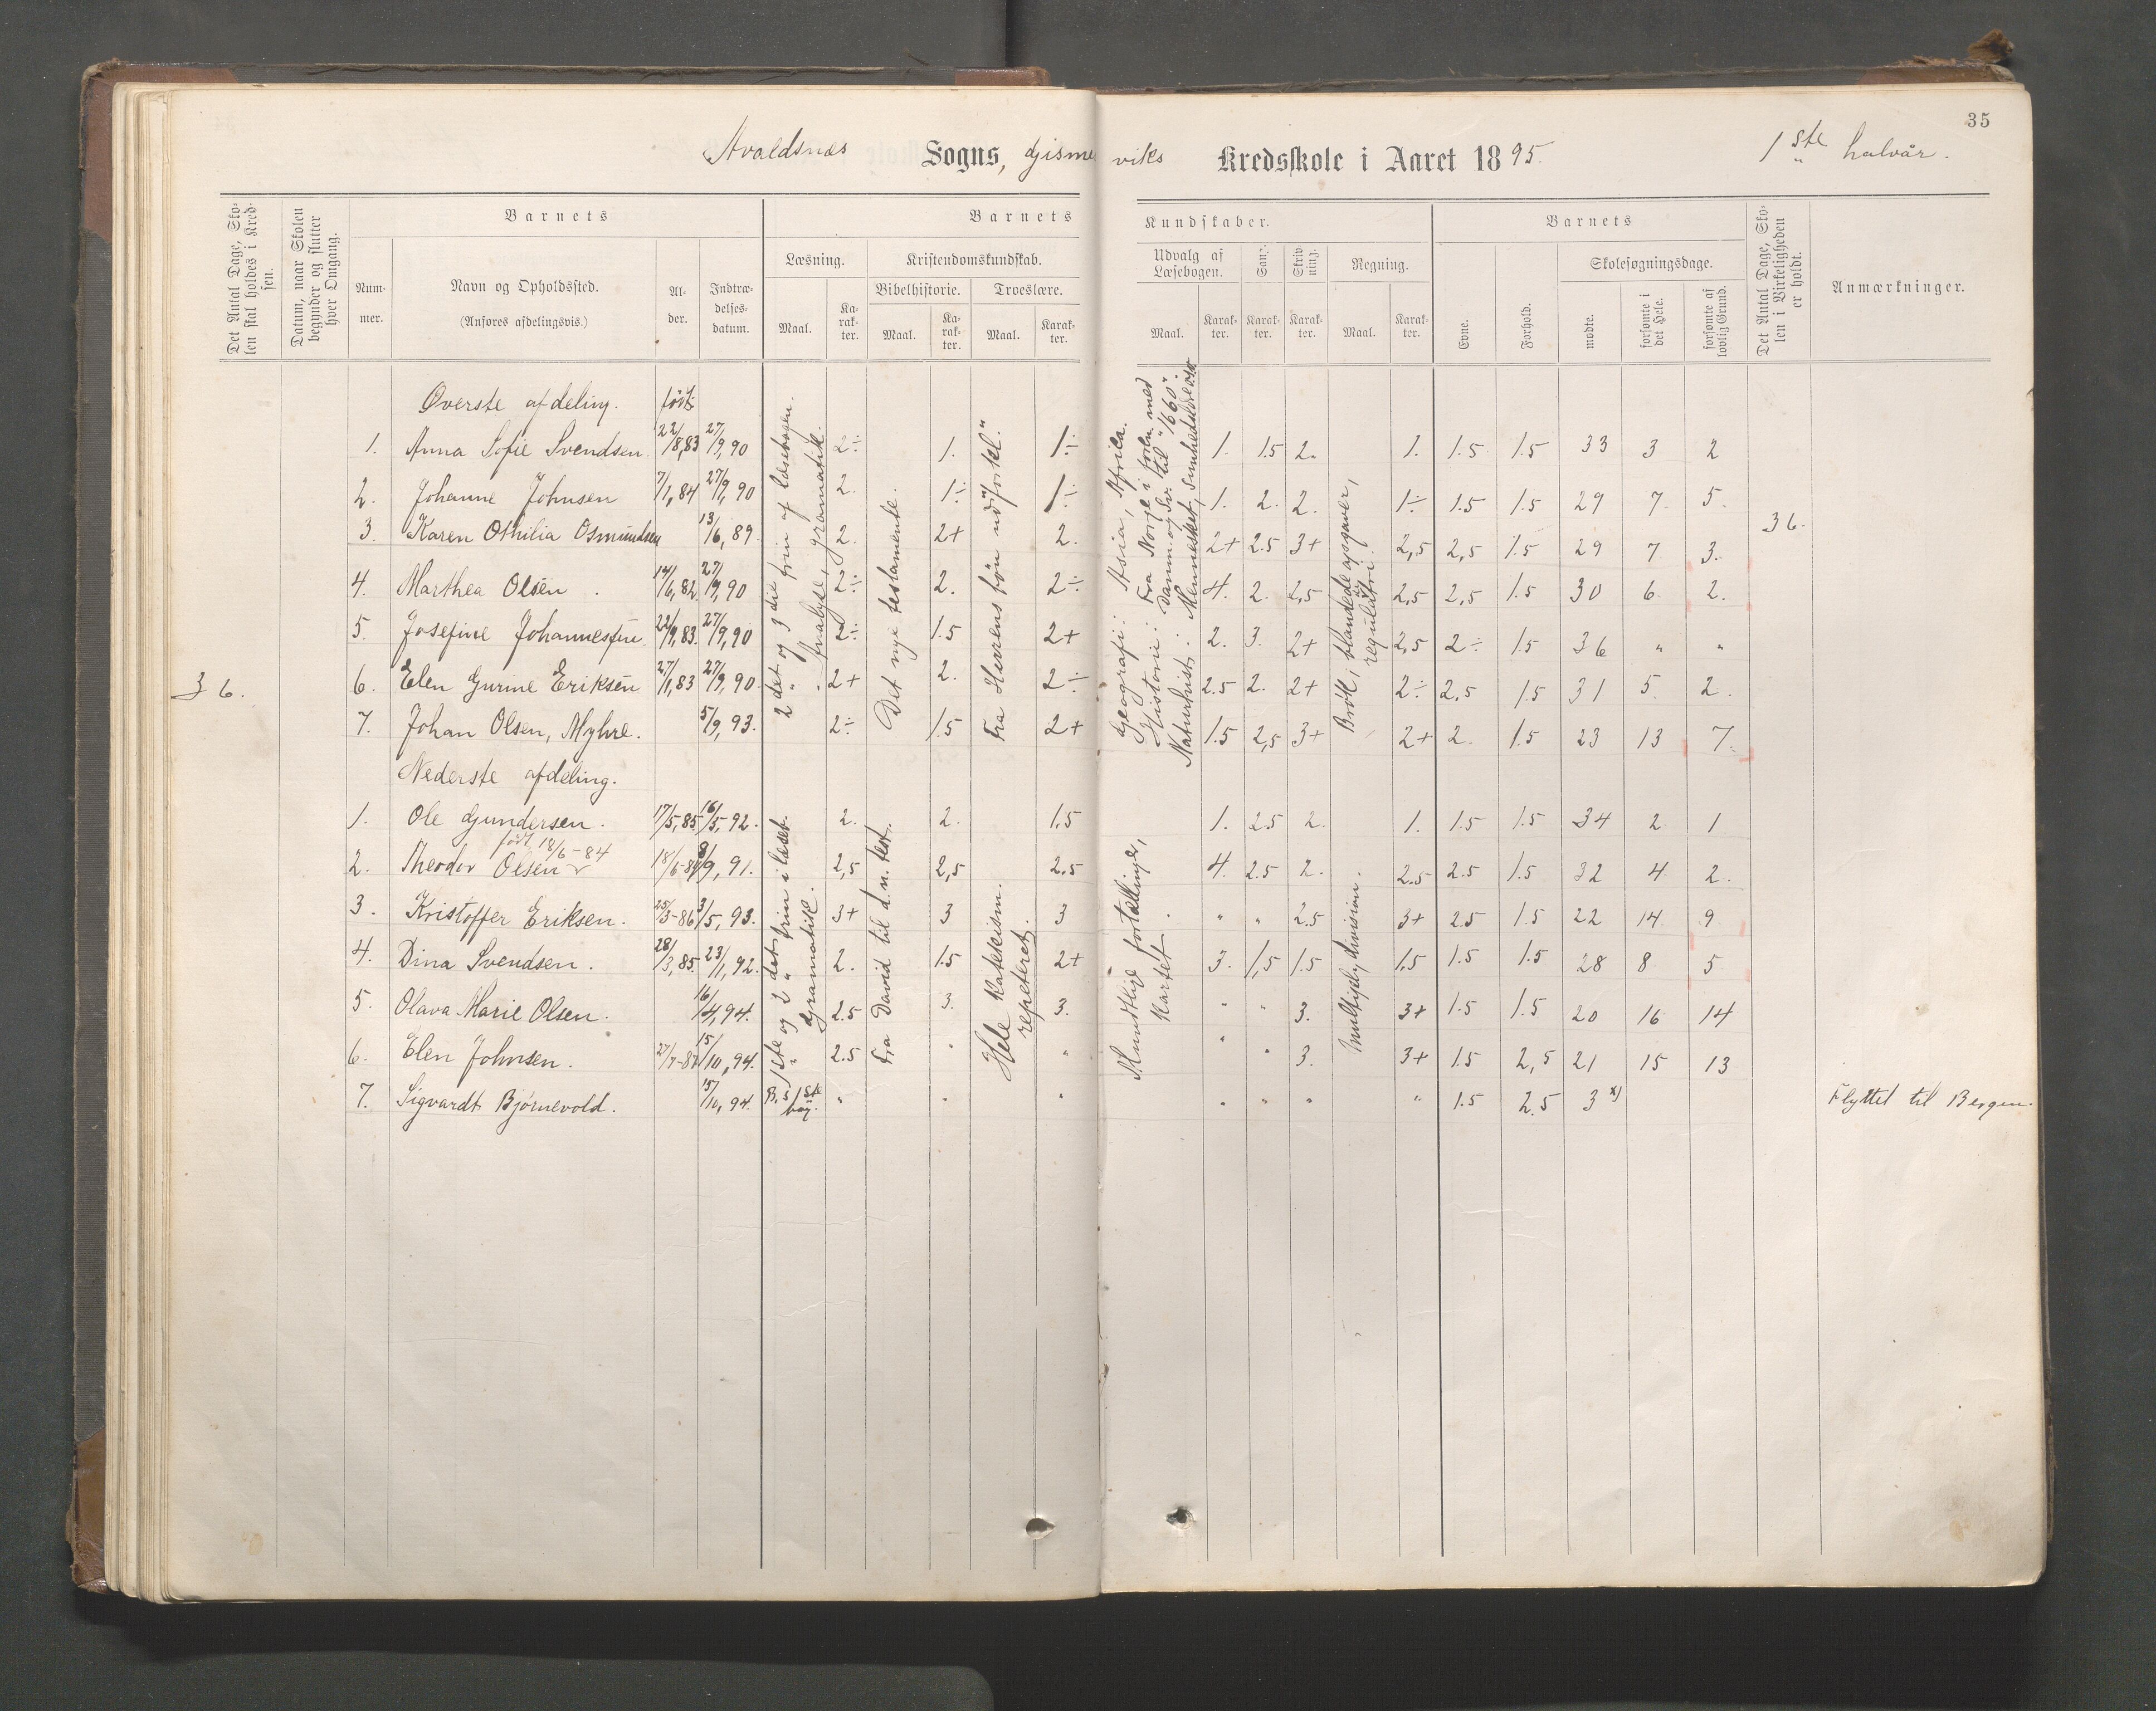 35
Avaldsnes Sogns, Gismer viks Kredsskole i Aaret 1895. 1ste halvår.
Det Antal Dage, Skolen skal holdes i Kredsen.
Datum, naar Skolen begynder og slutter hver Omgang.
Barnets
Barnets Kundskaber.
Barnets
Det Antal Dage, Skolen i Virkeligheden er holdt.
Anmærkninger.
Nummer.
Navn og Opholdssted.
(Anføres afdelingsvis.)
Alder.
Indtrædelsesdatum.
Læsning.
Kristendomskundskab.
Udvalg af Læsebogen.
Sang.
Skrivning.
Regning.
Evne.
Forhold.
Skolesøgningsdage.
Bibelhistorie.
Troeslære.
Maal.
Karakter.
Maal.
Karakter.
Maal.
Karakter.
Maal.
Karakter.
Karakter.
Karakter.
Maal.
Karakter.
mødte.
forsømte i det Hele.
forsømte af lovlig Grund.
Øverste afdeling. født:
1. Anna Sofie Svendsen 22/8,83 27/9,90 2÷ 1. 1÷ 1. 1.5 2. 1. 1.5 1.5 33 3 2
2. Johanne Johnsen 7/1,84 27/9,90 2. 1÷ 1÷ 1. 2. 2. 1÷ 1.5 1.5 29 7 5.
3. Karen Othilia Osmundsen 13/6,89. 2. 2+ 2. 2+ 2.5 3+ 2,5 2,5 1.5 29 7 3.
36.
4. Marthea Olsen 14/6,82. 27/9,90 2÷ 2. 2÷ 4. 2. 2,5 2,5 2,5 1.5 30 6. 2.
5. Josefine Johannesen 22/9,83. 27/9,90 2÷ 1.5 2+ 2. 3. 2+ 2,5 2÷ 1.5 36 " "
36.
6. Elen Gurine Eriksen 27/1,83 27/9,90. 2+ 2. 2÷ 2.5 2. 2+ 2÷ 2,5 1.5 31 5. 2.
7. Johan Olsen, Myhre. 5/9,93. 2÷ 1.5 2+ 1.5 2,5 3+ 2+ 2. 1.5 23 13 7.
2det og 3die trin af læsebogen. analyse, gramatik.
Det nye testamente.
Fra Herrens bøn "udforkl."
Geografi: Asia, Afrika.
Historie: Fra Norge i foren. med Danm. og Sv. til "1660".
Naturhist.: Mennesket, Sundhedslære
Brøk, blandede opgaver, regulatri.
Nederste afdeling.
1. Ole Gundersen. 17/5,85 16/5,92. 2. 2. 1.5 1. 2.5 2. 1. 1.5 1.5 34 2 1
født 18/6-84
2. Theodor Olsen 18/6-84 8/9,91. 2,5 2,5 2.5 4. 2.5 2. 2.5 2.5 1.5 32 4. 2.
3. Kristoffer Eriksen. 25/3-86 3/5,93. 3+ 3 3 " " 2.5 3+ 2.5 1.5 22 14 9.
4. Dina Svendsen. 28/3,85. 23/1,92. 2. 1.5 2+ 3. 1,5 1.5 1,5 1.5 1.5 28 8 5
5. Olava Marie Olsen. 16/4,94. 2.5 3. 3. " " 3. 3+ 1.5 1.5 20 16 14
6. Elen Johnsen. 15/10,94. 2.5 " " " " 3. 3+ 1.5 2,5 21 15 13
7. Sigvardt Bjørnevold. 15/10,94. 1ste bog. " " " " " " " 1.5 2.5 3 x) Flyttet til Bergen.
1ste og 2det trin i læseb. gramatik.
Fra David til d. n. test.
Hele katekism. repeteret.
Mundtlige fortællinger, Kartet.
Multipl. division.